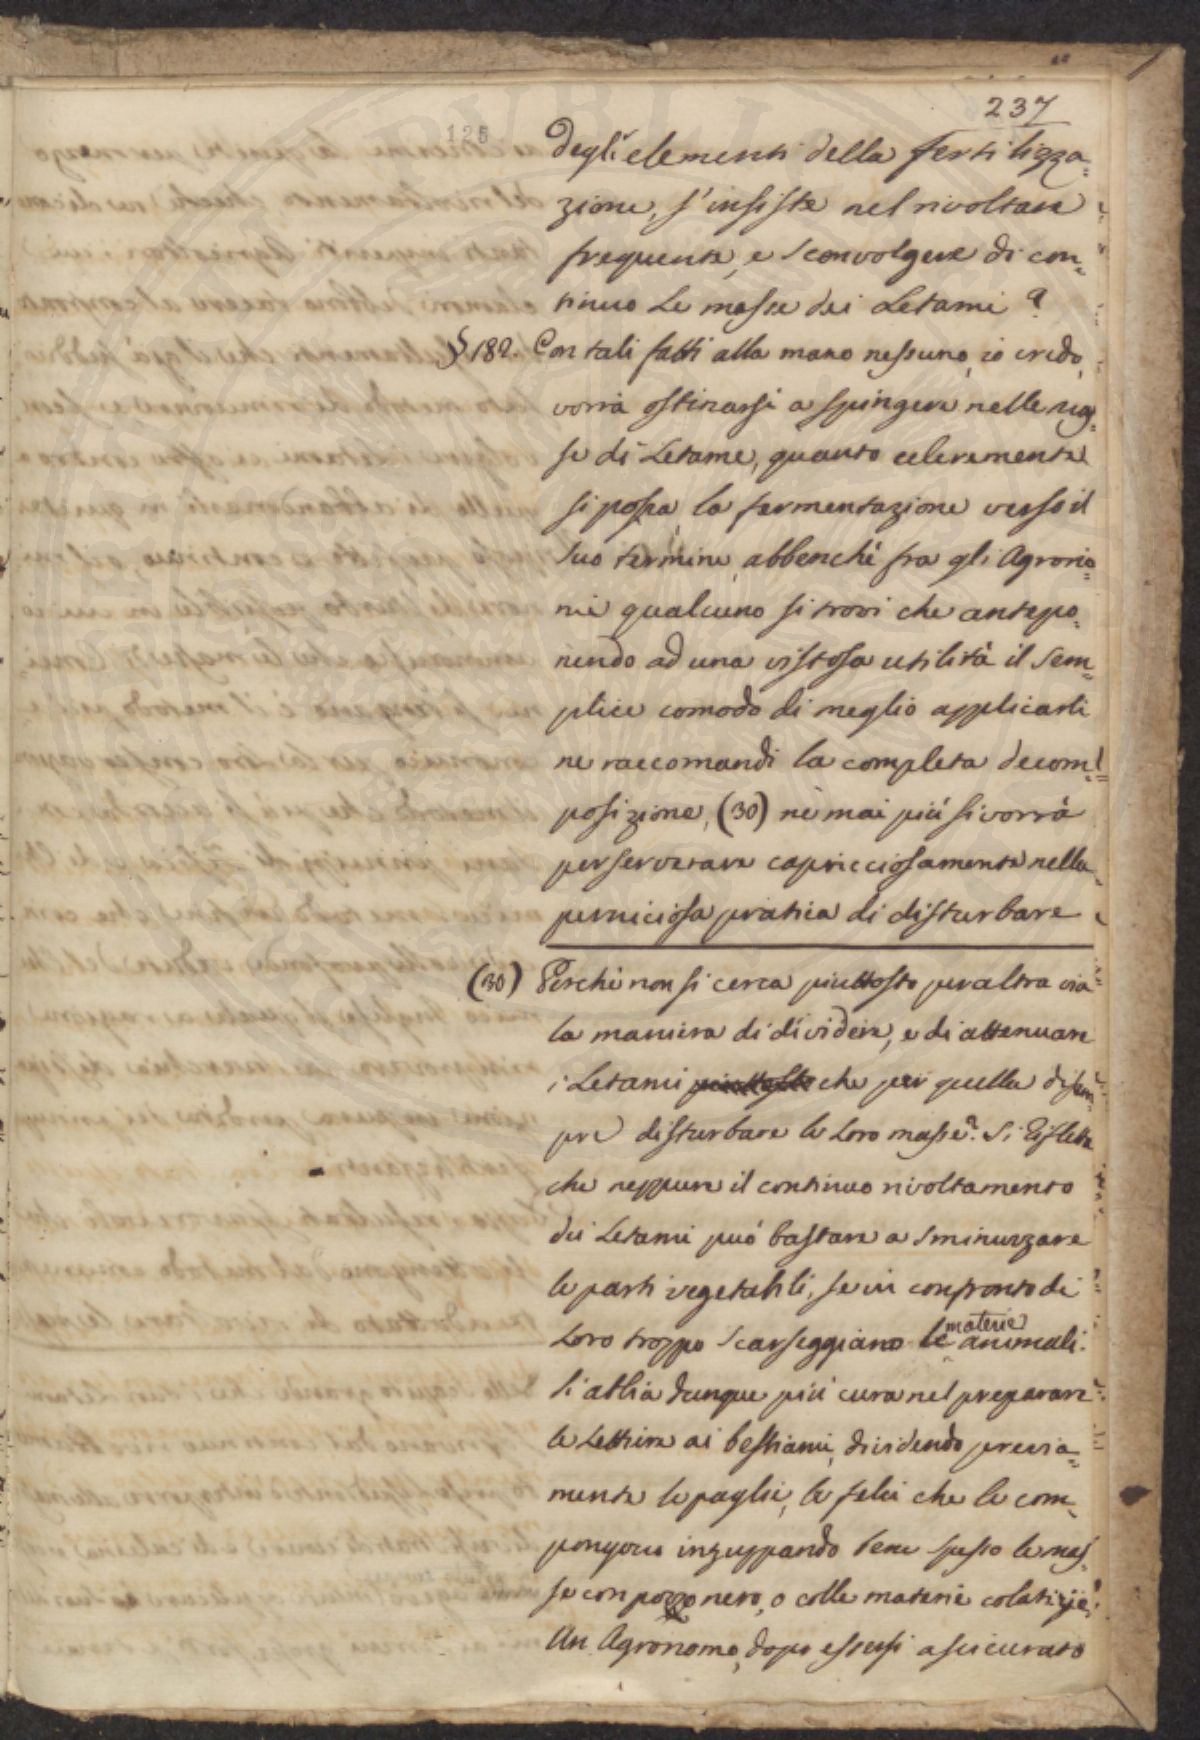 237
125
degli elementi della fertilizza=
zione, s'insiste nel rivoltare
frequente, e sconvolgere di con=
tinuo le masse dei Letami?
§ 182. Con tali fatti alla mano nessuno, io credo,
vorrà ostinarsi a spingere nelle mas=
se di Letame, quanto celeremente
si possa la fermentazione verso il
suo termine, abbenché fra gli Agrono=
mi qualcuno si trovi che antepo=
nendo ad una vistosa utilità il sem=
plice comodo di meglio applicarli
ne raccomandi la completa decom=
posizione, (30) nè mai più si vorrà
perseverare capricciosamente nella
perniciosa pratica di disturbare
(30) Perché non si cerca piuttosto per altra via
la maniera di dividere, e di attenuare
i Letami piuttosto che per quella di sem=
pre disturbare le loro masse? Si rifletta
che neppure il continuo rivoltamento
dei Letami può bastare a sminuzzare
le parti vegetabili, se in confronto di
loro troppo scarseggiano le materie animali.
Si abbia dunque più cura nel preparare
le Lettiere ai bestiami, dividendo previa=
mente le paglie, le felci che le com=
pongono inzuppando bene spesso le mas=
se con pozzo nero, o colle materie colaticcie.
Un Agronomo, dopo essersi assicurato